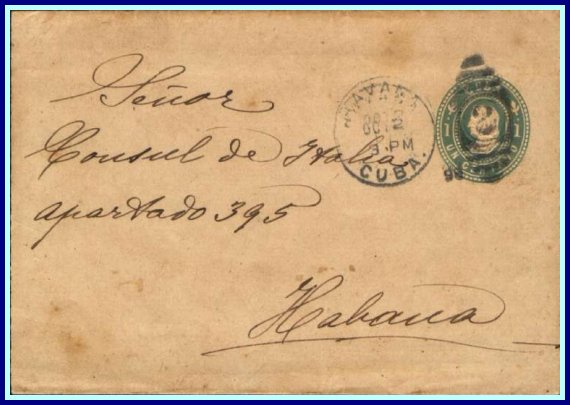 Señor
Consul de Italia
apartado 395
Habana
HAVANA
OCT 2
3 PM
CUBA.
1 1
UN